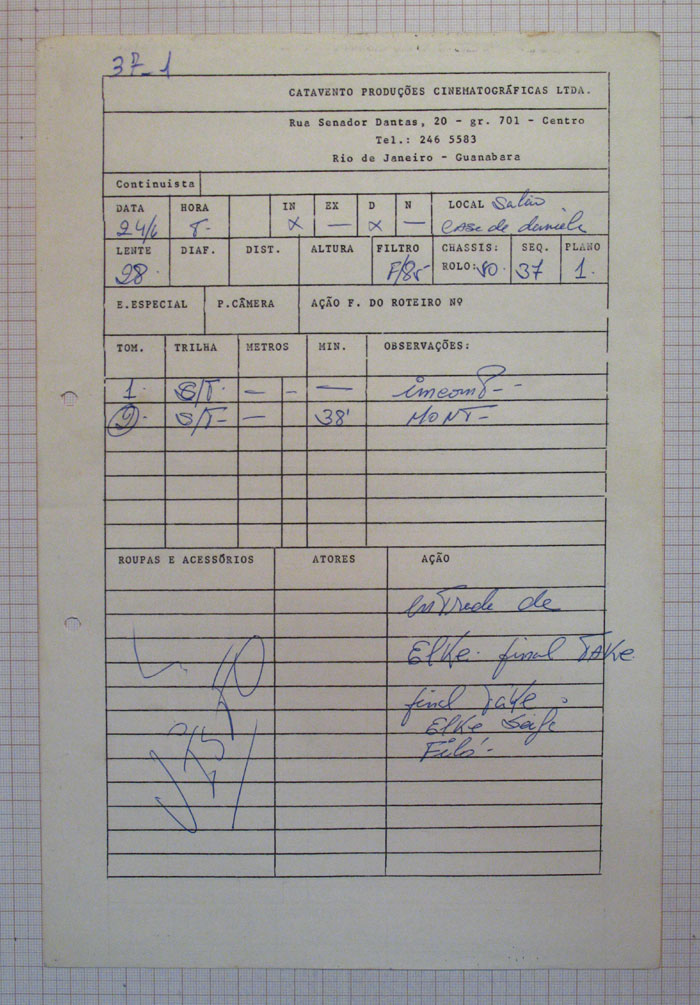 37-1
CATAVENTO PRODUÇÕES CINEMATOGRÁFICAS LTDA.
Rua Senador Dantas, 20 - gr. 701 - Centro
Tel.: 246 5583
Rio de Janeiro - Guanabara
Continuista
DATA HORA IN EX D N LOCAL Salão
24/6 T. X — X — casa de
LENTE DIAF. DIST. ALTURA FILTRO CHASSIS: SEQ. PLANO
28. F/85 ROLO: 50. 37 1.
E.ESPECIAL P.CÂMERA AÇÃO F. DO ROTEIRO Nº
TOM. TRILHA METROS MIN. OBSERVAÇÕES:
1. S/T. — - —
2. S/T- — 38' MONT-
ROUPAS E ACESSÓRIOS ATORES AÇÃO
entrada de
Elke. final TAKE
final TAKE.
Elke
Filó-